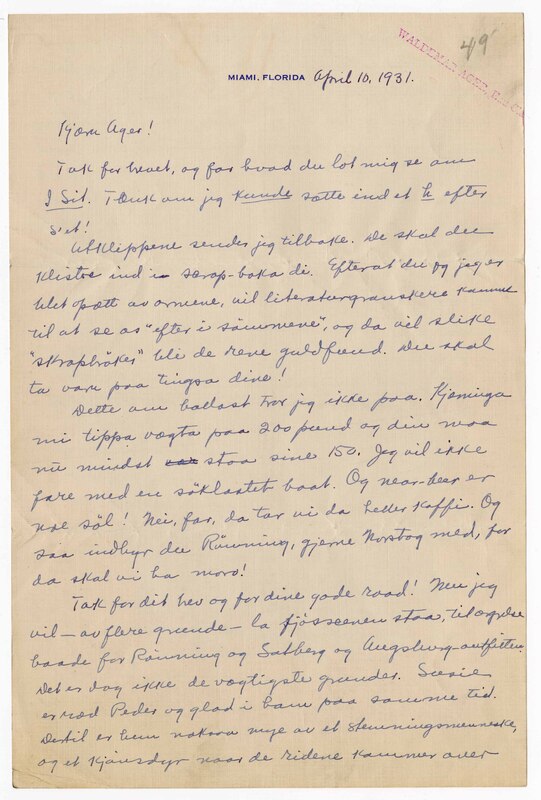 49
WALDEMAR AGER, EAU CLAIRE
MIAMI, FLORIDA April 10, 1931.
Kjære Ager!
Tak for brevet, og for hvad du lot mig se om
I Sit. Tænk om jeg kunde sætte ind et h efter
S'et!
Utklippene sender jeg tilbake. De skal du
klistre ind i scrap-boka di. Efterat du og jeg er
blet ópætt av ormene, vil literaturgranskere komme
til at se os "efter i sömmene", og da vil slike
"skrapböker" bli de rene guldfund. Du skal
ta vare paa tingsa dine!
Dette om ballast tror jeg ikke paa. Kjæringa
mi tippa vægta paa 200 pund og din maa
nu mindst staa sine 150. Jeg vil ikke
fare med en söklastet baat. Og near-beer er
noe söl! Nei, far, da tar vi da heller kaffi. Og
saa indbyr du Rönning, gjerne Norstog med, for
da skal vi ha moro!
Tak for dit brev og for dine gode raad! Men jeg
vil — av flere grunde — la fjösscenen staa, til ærgrelse
baade for Rönning og Satberg og Augsburg-outfitten.
Det er dog ikke de vægtigste grunder. Susie
er ræd Peder og glad i ham paa samme tid.
Dertil er hun nokså mye av et stemningsmenneske,
og et kjönsdyr naar de ridene kommer over